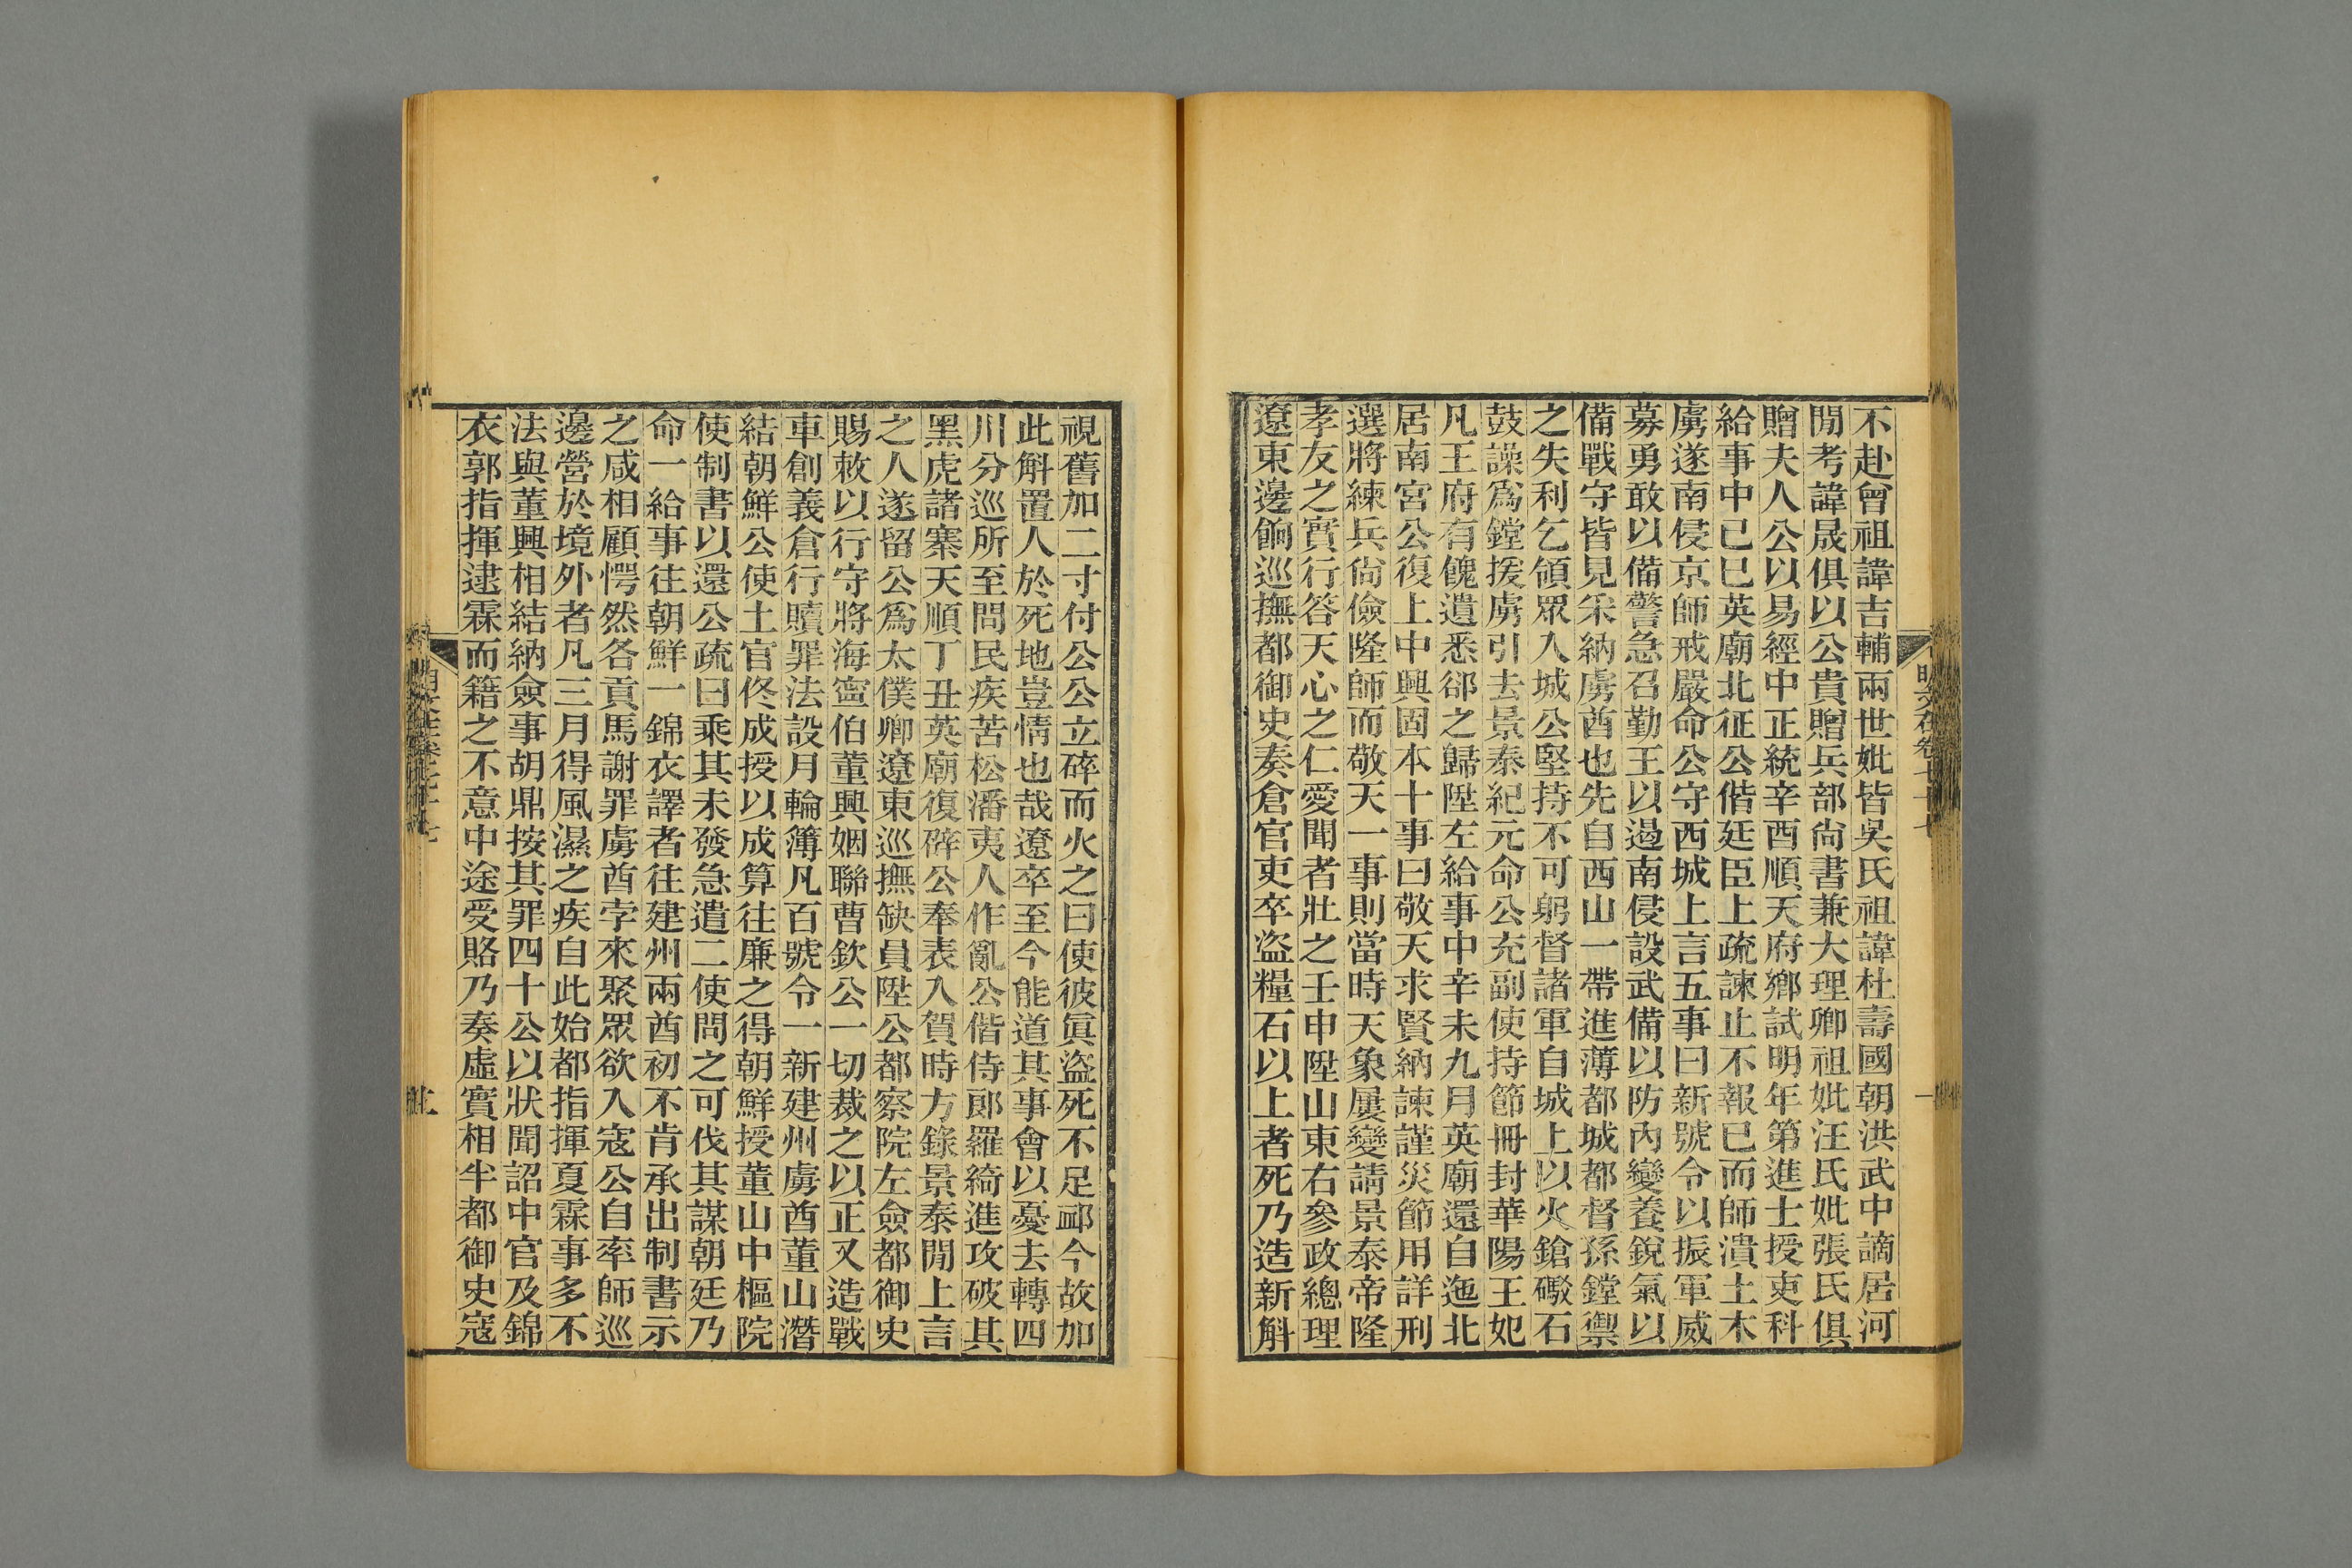 不赴曾祖諱吉輔兩世妣皆吳氏祖諱杜壽國朝洪武中謫居河
閒考諱晟俱以公貴贈兵部尙書兼大理卿祖妣汪氏妣張氏俱
贈夫人公以易經中正統辛酉順天府鄕試明年第進士授吏科
給事中己巳英廟北征公偕廷臣上疏諫止不報已而師潰土木
虜遂南侵京師戒嚴命公守西城上言五事曰新號令以振軍威
募勇敢以備警急召勤王以遏南侵設武備以防內變養銳氣以
備戰守皆見采納虜酋也先自西山一帶進薄都城都督孫鏜禦
之失利乞領眾入城公堅持不可躬督諸軍自城上以火鎗礮石
鼓譟爲鏜援虜引去景泰紀元命公充副使持節冊封華陽王妃
凡王府有餽遺悉郤之歸陞左給事中辛未九月英廟還自迤北
居南宮公復上中興固本十事曰敬天求賢納諫謹災節用詳刑
選將練兵尙儉隆師而敬天一事則當時天象屢變請景泰帝隆
孝友之實行答天心之仁愛聞者壯之壬申陞山東右參政總理
遼東邊餉巡撫都御史奏倉官吏卒盜糧石以上者死乃造新斛
明文在卷七十七
視舊加二寸付公公立碎而火之曰使彼眞盜死不足䘏今故加
此斛置人於死地豈情也哉遼卒至今能道其事會以憂去轉四
川分巡所至問民疾苦松潘夷人作亂公偕侍郞羅綺進攻破其
黑虎諸寨天順丁丑英廟復辟公奉表入賀時方錄景泰閒上言
之人遂留公爲太僕卿遼東巡撫缺員陞公都察院左僉都御史
賜敕以行守將海寧伯董興姻聯曹欽公一切裁之以正又造戰
車創義倉行贖罪法設月輪簿凡百號令一新建州虜酋董山潛
結朝鮮公使土官佟成授以成算往廉之得朝鮮授董山中樞院
使制書以還公疏曰乘其未發急遣二使問之可伐其謀朝廷乃
命一給事往朝鮮一錦衣譯者往建州兩酋初不肯承出制書示
之咸相顧愕然各貢馬謝罪虜酋孛來聚眾欲入寇公自率師巡
邊營於境外者凡三月得風濕之疾自此始都指揮夏霖事多不
法與董興相結納僉事胡鼎按其罪四十公以狀聞詔中官及錦
衣郭指揮逮霖而籍之不意中途受賂乃奏虛實相半都御史寇